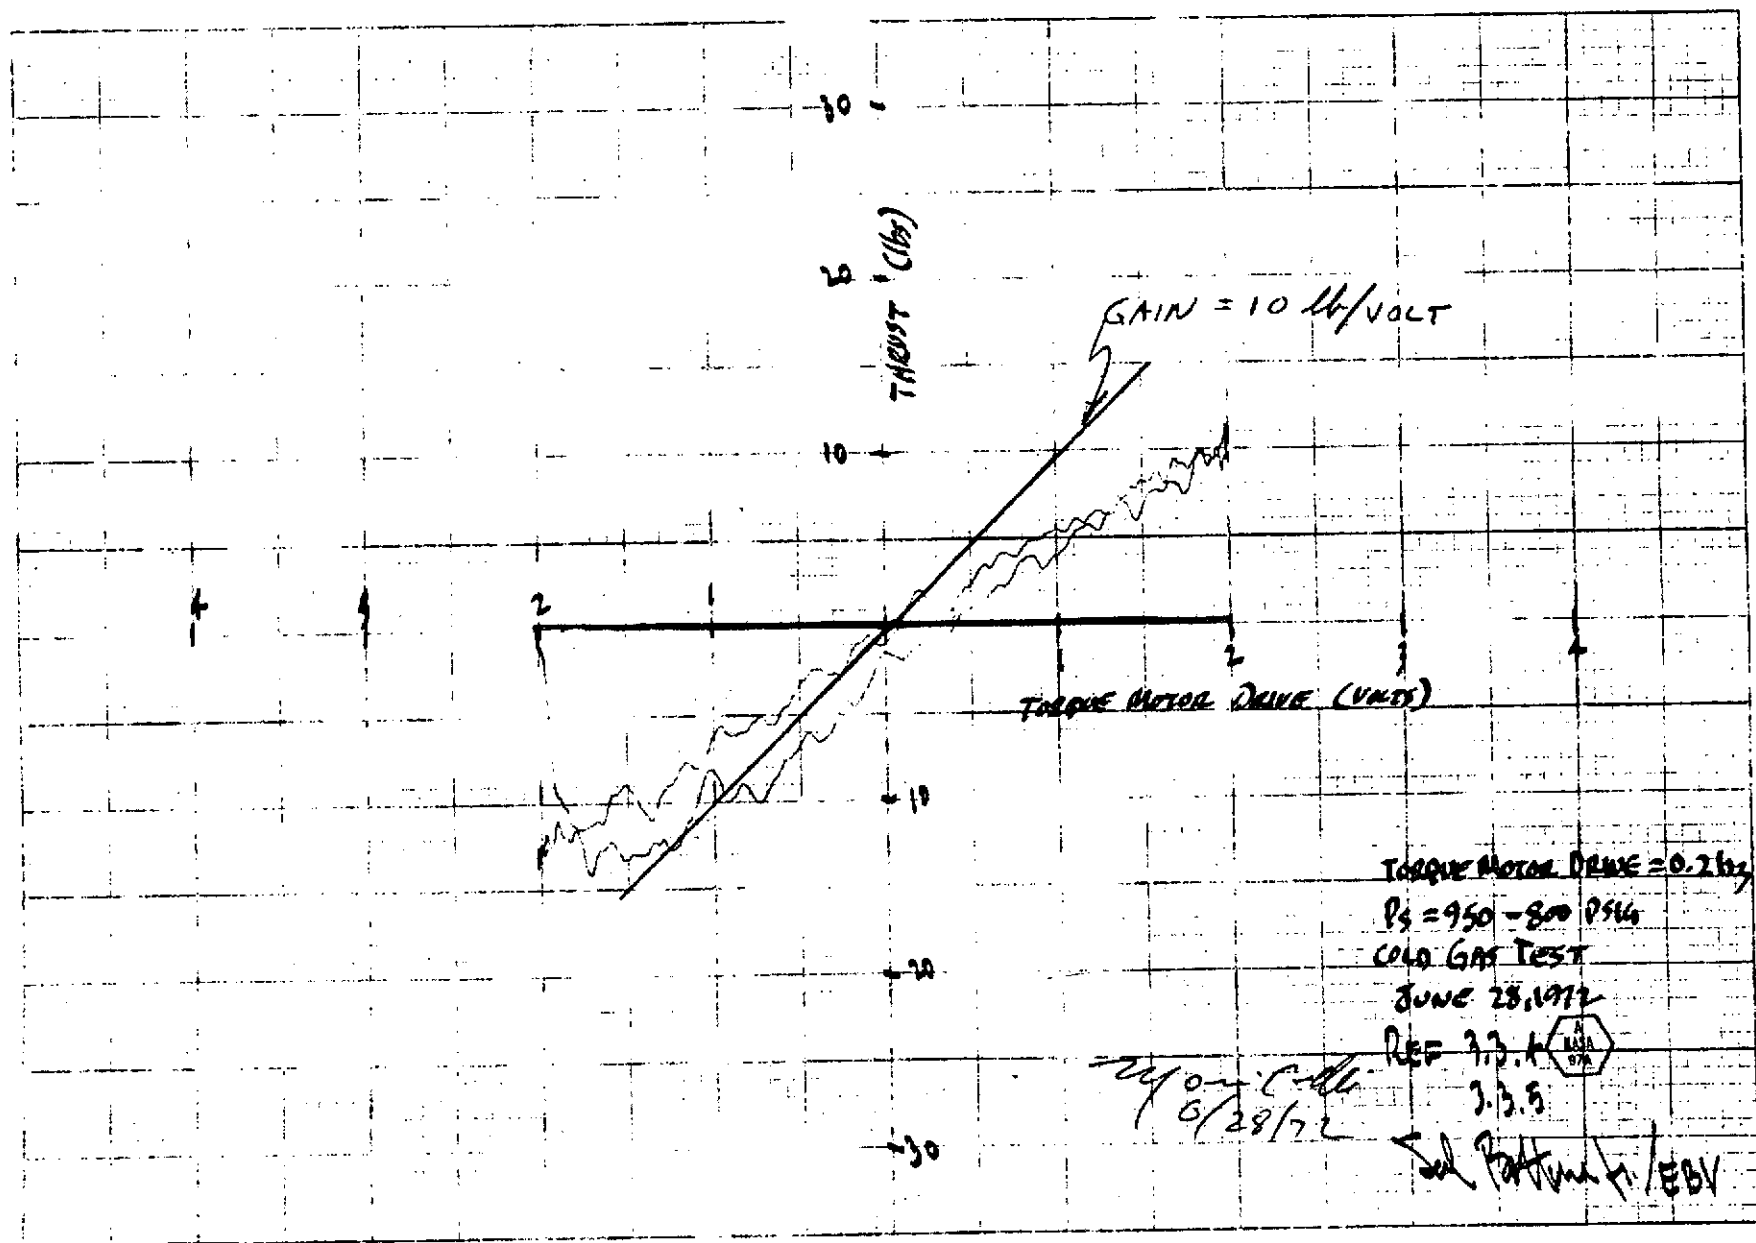 30
THRUST (lbs)
20
GAIN = 10 lb/VOLT
10
4
2
1
1
2
3
4
TORQUE MOTOR DRIVE (VOLTS)
10
20
30
TORQUE MOTOR DRIVE = 0.2 hz
Ps = 950 - 800 PSIG
COLD GAS TEST
JUNE 28, 1972
REF 3.3.4
NASA
3.3.5
6/28/72
/EBV